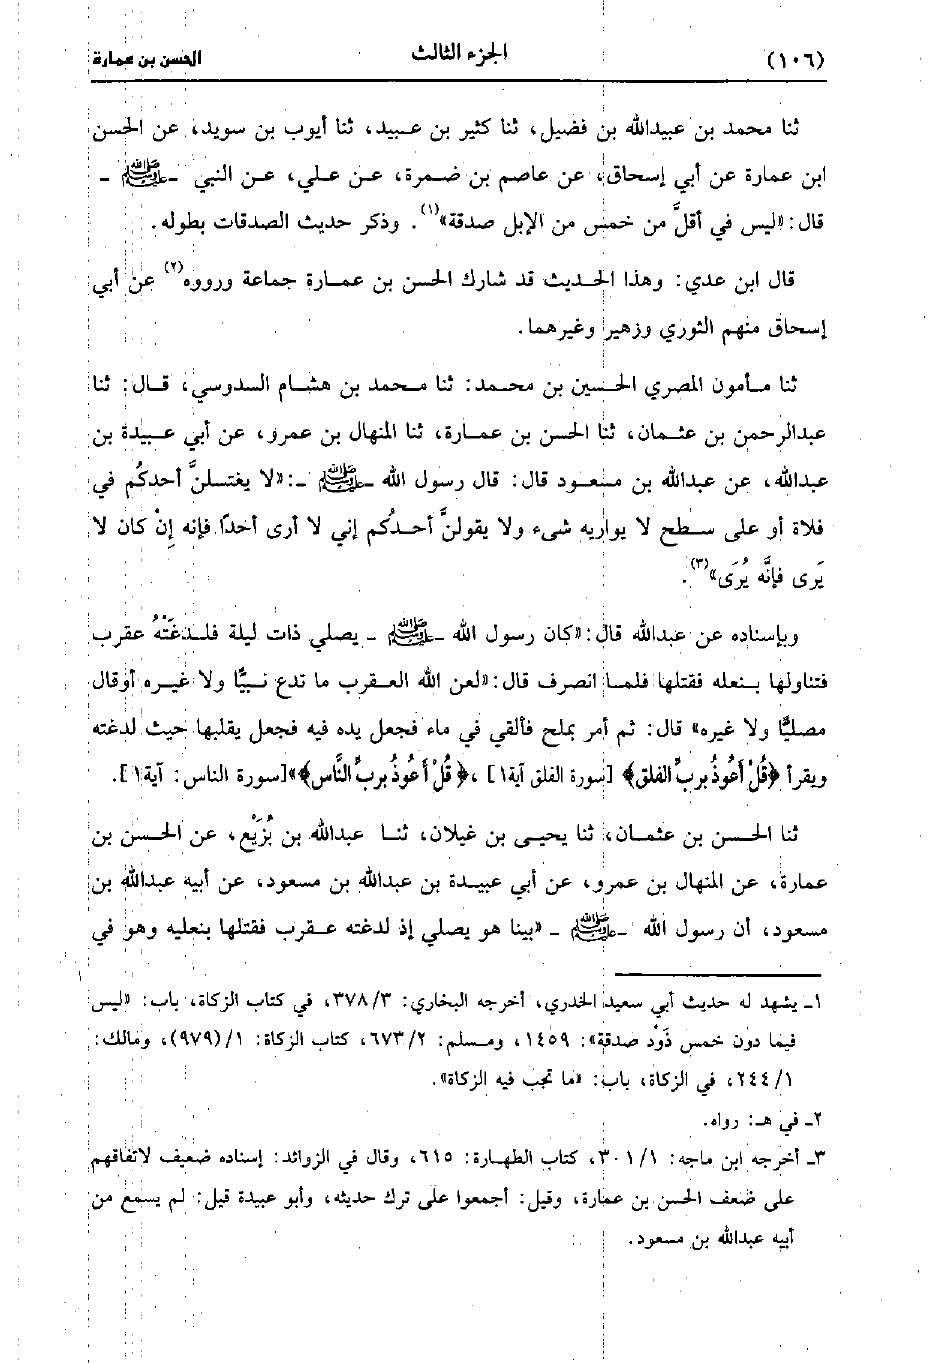 (١٠٦) الجزء الثالث الحسن بن عمارة
ثنا محمد بن عبيدالله بن فضيل، ثنا كثير بن عبيد، ثنا أيوب بن سويد، عن الحسن
ابن عمارة عن أبي إسحاق، عن عاصم بن ضمرة، عن علي، عن النبي -ﷺ-
قال: «ليس في أقلَّ من خمس من الإبل صدقة»(١). وذكر حديث الصدقات بطوله.
قال ابن عدي: وهذا الحديث قد شارك الحسن بن عمارة جماعة ورووه(٢) عن أبي
إسحاق منهم الثوري وزهير وغيرهما.
ثنا مأمون المصري الحسين بن محمد: ثنا محمد بن هشام السدوسي، قال: ثنا
عبدالرحمن بن عثمان، ثنا الحسن بن عمارة، ثنا المنهال بن عمرو، عن أبي عبيدة بن
عبدالله، عن عبدالله بن مسعود قال: قال رسول الله -ﷺ-: «لا يغتسلنَّ أحدكُم في
فلاة أو على سطح لا يواريه شيء ولا يقولنَّ أحدُكُم إني لا أرى أحدًا فإنه إنْ كان لا
يَرى فإنَّه يُرَى»(٣).
وبإسناده عن عبدالله قال: «كان رسول الله -ﷺ- يصلي ذات ليلة فلدغَتْهُ عقرب
فتناولها بنعله فقتلها فلما انصرف قال: «لعن الله العقرب ما تدع نبيًّا ولا غيره أوقال
مصليًّا ولا غيره» قال: ثم أمر بملح فألقي في ماء فجعل يده فيه فجعل يقلبها حيث لدغته
ويقرأ ﴿قُلْ أَعُوذُ بربِّ الفلق﴾ [سورة الفلق آية١]، ﴿قُلْ أَعُوذُ بربِّ النَّاس﴾»[سورة الناس: آية١].
ثنا الحسن بن عثمان، ثنا يحيى بن غيلان، ثنا عبدالله بن بُزَيْع، عن الحسن بن
عمارة، عن المنهال بن عمرو، عن أبي عبيدة بن عبدالله بن مسعود، عن أبيه عبدالله بن
مسعود، أن رسول الله -ﷺ- «بينا هو يصلي إذ لدغته عقرب فقتلها بنعليه وهو في
١ـ يشهد له حديث أبي سعيد الخدري، أخرجه البخاري: ٣٧٨/٣، في كتاب الزكاة، باب: «ليس
فيما دون خمس ذَوْد صدقة»: ١٤٥٩، ومسلم: ٦٧٣/٢، كتاب الزكاة: ١/(٩٧٩)، ومالك:
٢٤٤/١، في الزكاة، باب: «ما تجب فيه الزكاة».
٢ـ في هـ: رواه.
٣ـ أخرجه ابن ماجه: ٣٠١/١، كتاب الطهارة: ٦١٥، وقال في الزوائد: إسناده ضعيف لاتفاقهم
على ضعف الحسن بن عمارة، وقيل: أجمعوا على ترك حديثه، وأبو عبيدة قيل: لم يسمع من
أبيه عبدالله بن مسعود.